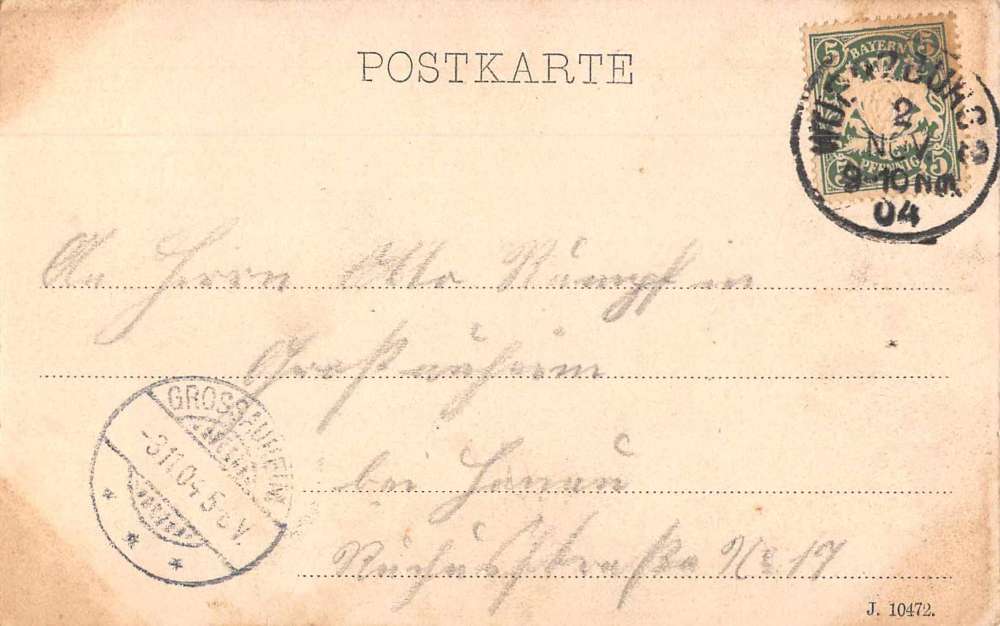 POSTKARTE
5 BAYERN 5
5 PFENNIG 5
WÜRZBURG 2
2
NOV
9-10 Nm
04
An Herrn Otto Rümpf in
Großauheim
GROSSAUHEIM
-3.11.04.5-6V.
bei Hanau
No 17
J. 10472.